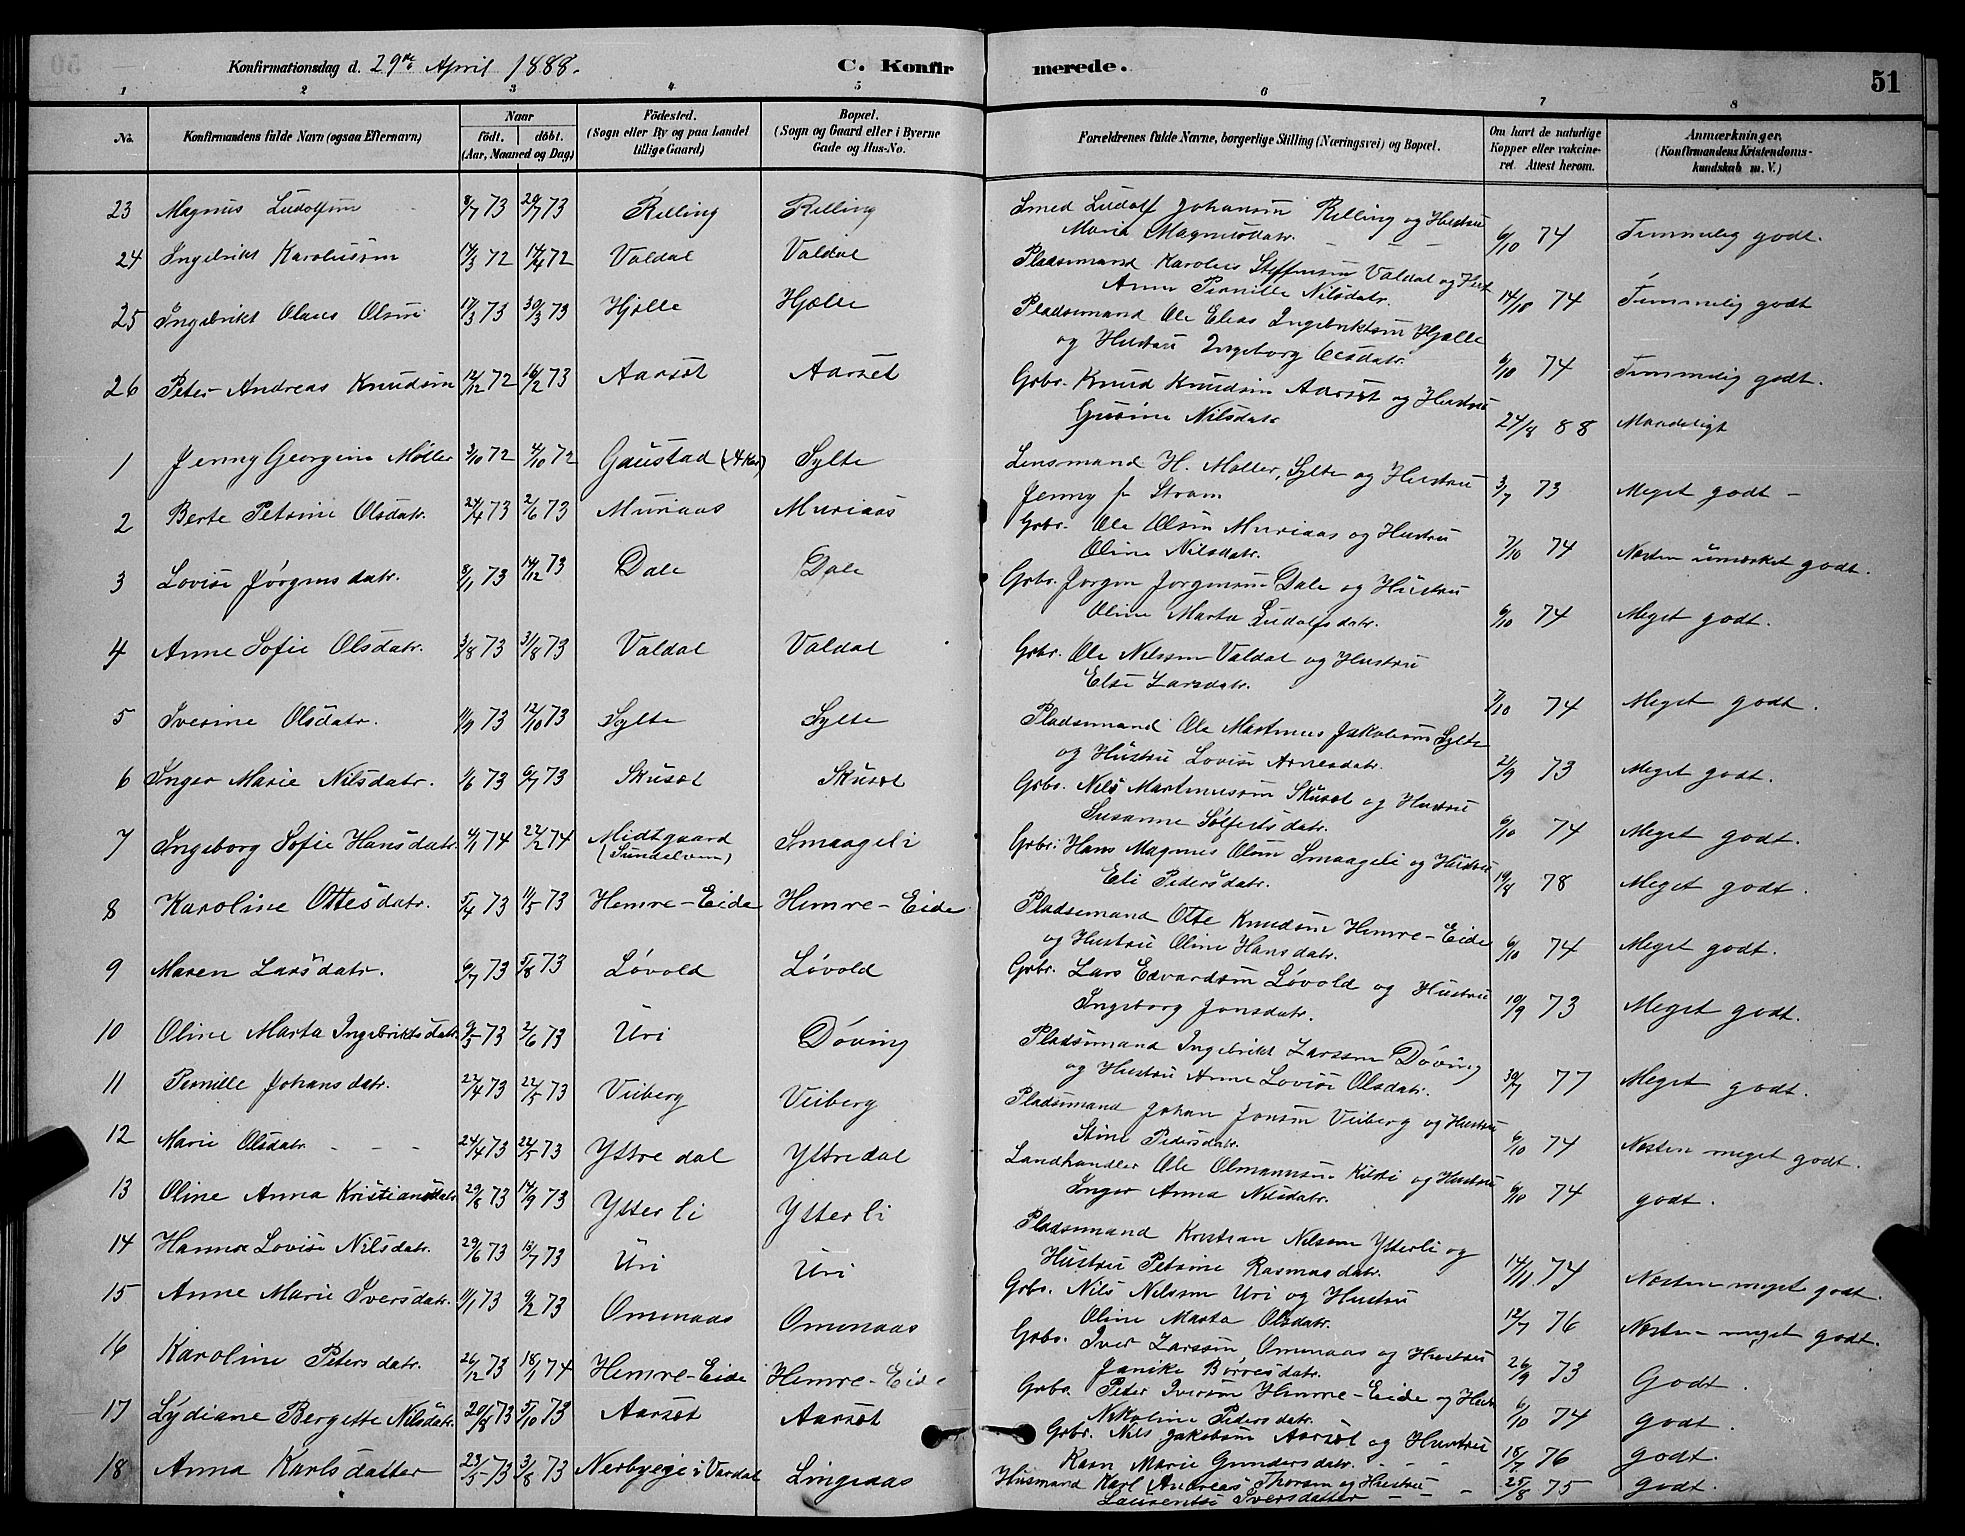 Konfirmationsdag d. 29de April 1888. C. Konfirmerede. 51
1 2 3 4 5 6 7 8
No. Konfirmandens fulde Navn (ogsaa Efternavn) Naar født. døbt. (Aar, Maaned og Dag) Födested. (Sogn eller By og paa Landet tillige Gaard) Bopæl. (Sogn og Gaard eller i Byerne Gade og Hus-No. Forældrenes fulde Navne, borgerlige Stilling (Næringsvei) og Bopæl. Om havt de naturlige Kopper eller vakcineret. Attest herom. Anmærkninger. (Konfirmandens Kristendomskundskab m. V.)
23 Magnus Ludolfsen 8/7 73 20/7 73 Relling Relling Smed Ludolf Johansen Relling og Hustru
Maria Magnusdatr. 6/10 74 Temmelig godt.
24 Ingebrikt Karolussen 17/3 72 14/4 72 Valdal Valdal Pladsemand Karolus Steffensen Valdal og Hust
Anne Pernille Nilsdatr. 14/10 74 Temmelig godt
25 Ingebrikt Olaus Olsen 17/3 73 30/3 73 Hjelle Hjelle Pladsemand Ole Elias Ingebriktsen Hjelle
og Hustru Ingeborg Olsdatr. 6/10 74 Temmelig godt.
26 Peter Andreas Knudsen 12/12 72 16/2 73 Aarset Aarset Grbr. Knud Knudsen Aarset og Hustru
Gurine Nilsdatr 24/8 88 Maadeligt
1 Jenny Georgine Møller 3/10 72 4/10 72 Gaustad Sylte Lensmand H. Møller, Sylte og Hustru
Jenny f. Strøm 3/7 73 Meget godt -
2 Berte Petrine Olsdatr. 24/4 73 2/6 73 Muriaas Muriaas Grbr. Ole Olsen Muriaas og Hustru
Oline Nilsdatr. 7/10 74 Næsten udmærket godt.
3 Lovise Jørgensdatr. 8/11 73 14/12 73 Dale Dale Grbr. Jørgen Jørgensen Dale og Hustru
Oline Marta Ludolfsdatr. 6/10 74 Meget godt.
4 Anne Sofie Olsdatr. 3/8 73 31/8 73 Valdal Valdal Grbr. Ole Nilssen Valdal og Hustru
Else Larsdatr. 7/10 74 Meget godt.
5 Iverine Olsdatr. 11/9 73 12/10 73 Sylte Sylte Pladsemand Ole Martinus Jakobsen Sylte
og Hustru Lovise Arnesdatr. 21/9 73 Meget godt.
6 Inger Marie Nilsdatr. 1/6 73 6/7 73 Skuset Skuset Grbr. Nils Martinussen Skuset og Hustru
Susanne Solfestsdatr. 6/10 74 Meget godt.
7 Ingeborg Sofie Hansdatr. 4/1 74 22/2 74 Midtgaard (Sundelven) Smaageli Grbr. Hans Magnus Olsen Smaageli og Hustru
Eli Pedersdatr. 19/8 78 Meget godt.
8 Karoline Ottesdatr. 5/4 73 11/5 73 Hemre-Eide Hemre-Eide Pladsemand Otte Knudsen Hemre-Eide
og Hustru Oline Hansdatr. 6/10 74 Meget godt.
9 Maren Larsdatr. 6/7 73 5/8 73 Løvold Løvold Grbr. Lars Edvardsen Løvold og Hustru
Ingeborg Jonsdatr. 19/9 73 Meget godt.
10 Oline Marta Ingebriktsdatr. 9/5 73 2/6 73 Uri Døving Pladsemand Ingebrikt Larssen Døving
og Hustru Anne Lovise Olsdatr. 30/7 77 Meget godt.
11 Pernille Johansdatr. 22/4 73 22/5 73 Veiberg Veiberg Pladsemand Johan Jonsen Veiberg og Hustru
Stine Pedersdatr. 6/10 74 Næsten meget godt.
12 Marie Olsdatr. 24/4 73 22/5 73 Yttredal Yttredal Landhandler Ole Olmannsen Kilsti og Hustru
Inger Anna Nilsdatr. 6/10 74 godt.
13 Oline Anna Kristiansdatr 29/8 73 14/9 73 Ytterli Ytterli Pladsemand Kristian Nilsen Ytterli og
Hustru Petrine Rasmusdatr. 14/11 74 Næsten meget godt.
14 Hanna Lovise Nilsdatr. 29/6 73 13/7 73 Uri Uri Grbr. Nils Nilssen Uri og Hustru
Oline Marta Olsdatr. 12/7 76 Næsten meget godt.
15 Anne Marie Iversdatr. 11/1 73 9/2 73 Omenaas Omenaas Grbr. Iver Larssen Omenaas og Hustru
Janike Børresdatr. 26/9 73 Godt.
16 Karoline Petersdatr. 26/12 73 18/1 74 Hemre-Eide Hemre-Eide Grbr. Peter Iversen Hemre-Eide og Hust
Nikoline Pedersdatr. 6/10 74 godt.
17 Lydiane Bergette Nilsdatr. 20/8 73 5/10 73 Aarset Aarset Grbr. Nils Jakobsen Aarset og Hustru
Karn Marie Gundersdatr. 18/7 76 godt.
18 Anna Karlsdatter 23/5 73 3/8 73 Lingeaas Husmand Karl Andreas Thorsen og Hustru
Laurentse Iversdatter 25/8 75 godt.